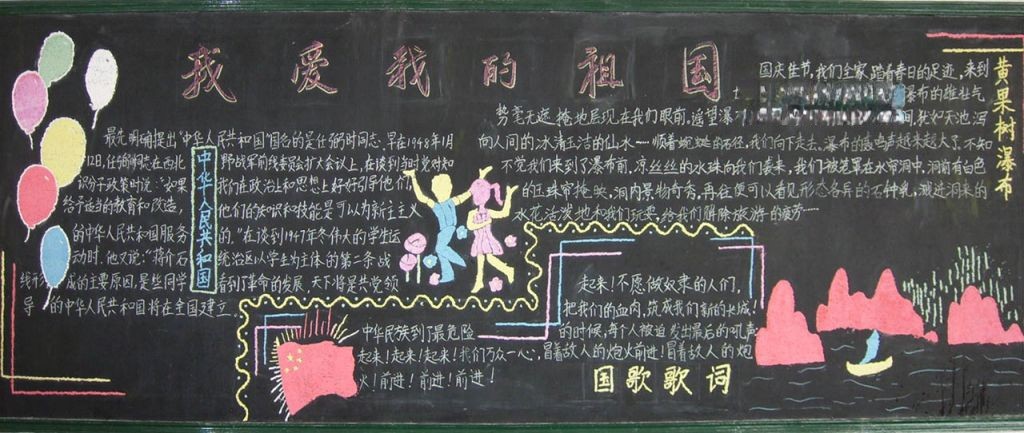 我爱我的祖国
最先明确提出"中华人民共和国"国名的是任弼时同志,早在1948年1月
12日,任弼时同志在西北野战军前线委员会扩大会议上,在谈到当时党对知
识分子政策时说:"如果我们在政治上和思想上好好引导他们
给予适当的教育和改造,他们的知识和技能是可以为新主义
的中华人民共和国服务的。"在谈到1947年冬伟大的学生运
动时,他又说:"蒋介石统治区以学生为主体的第二条战
线形成的主要原因,是些同学看到了革命的发展,天下将是共党领
导的中华人民共和国将在全国建立。
中华人民共和国
国庆佳节,我们全家踏着春日的足迹,来到
瀑布的雄壮气
势毫无遮掩地展现在我们眼前,遥望瀑
向人间的冰清玉洁的仙水……顺着蜿蜒的石径,我们向下走去,瀑布的轰鸣声越来越大了,不知
不觉我们来到了瀑布前,凉丝丝的水珠向我们袭来,我们被笼罩在水帘洞中,洞前有七色
的玉珠帘掩映,洞内景物奇秀,再往里可以看见形态各异的石钟乳,溅进洞来的
水花活泼地和我们玩耍,给我们解除旅游的疲劳……
黄果树瀑布
起来!不愿做奴隶的人们,
把我们的血肉,筑成我们新的长城。
中华民族到了最危险的时候,每个人被迫发出最后的吼声
起来!起来!起来!我们万众一心,冒着敌人的炮火前进!冒着敌人的炮
火!前进!前进!前进!
国歌歌词